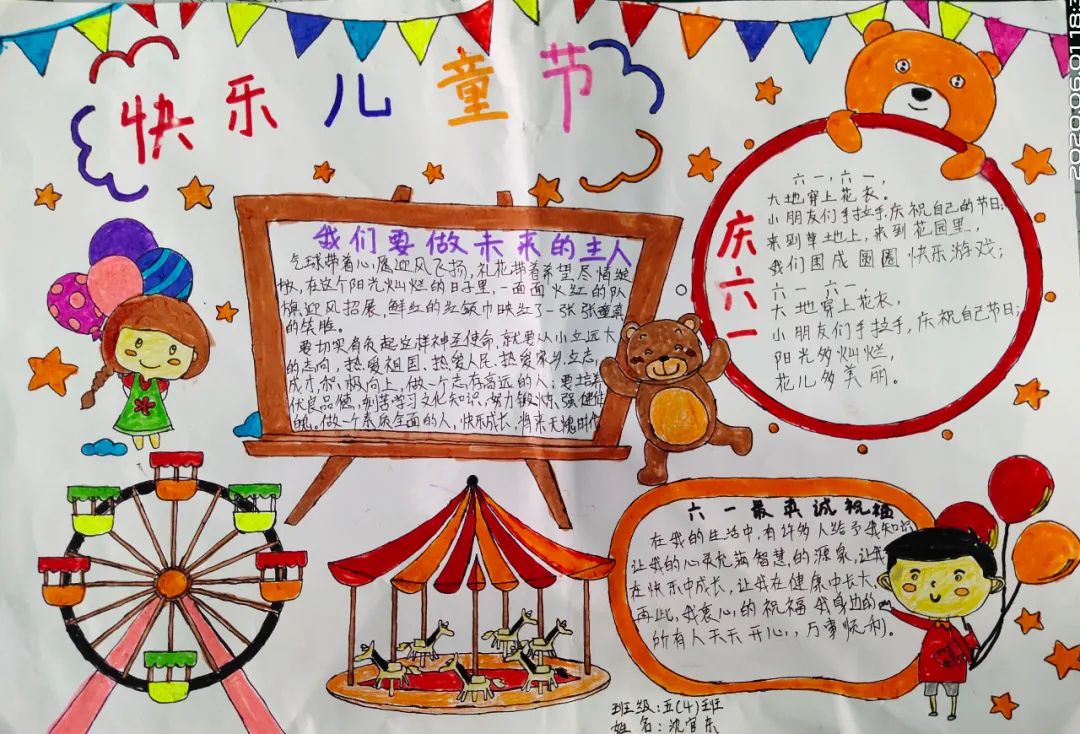 快乐儿童节
我们要做未来的主人
气球带着心愿迎风飞扬,礼花带着希望尽情绽
放,在这个阳光灿烂的日子里,一面面火红的队
旗迎风招展,鲜红的红领巾映红了一张张童真
的笑脸。
要切实肩负起这样神圣使命,就要从小立远大
的志向,热爱祖国,热爱人民,热爱家乡立志
成才,积极向上,做一个志存高远的人;要培养
优良品德,刻苦学习文化知识,努力锻炼强健体
魄。做一个素质全面的人,快乐成长,将来无愧时代
庆六一
六一,六一,
大地穿上花衣。
小朋友们手拉手,庆祝自己的节日;
来到草地上,来到花园里,
我们围成圆圈快乐游戏;
六一六一,
大地穿上花衣,
小朋友们手拉手,庆祝自己节日;
阳光多灿烂,
花儿多美丽。
六一最真诚祝福
在我的生活中,有许多人给予我知识
让我的心灵充满智慧的源泉,让我
在快乐中成长,让我在健康中长大
再此,我衷心的祝福我身边的
所有人天天开心,万事顺利。
班级:五(4)班
姓名:沈官东
2020.06.01 18:3